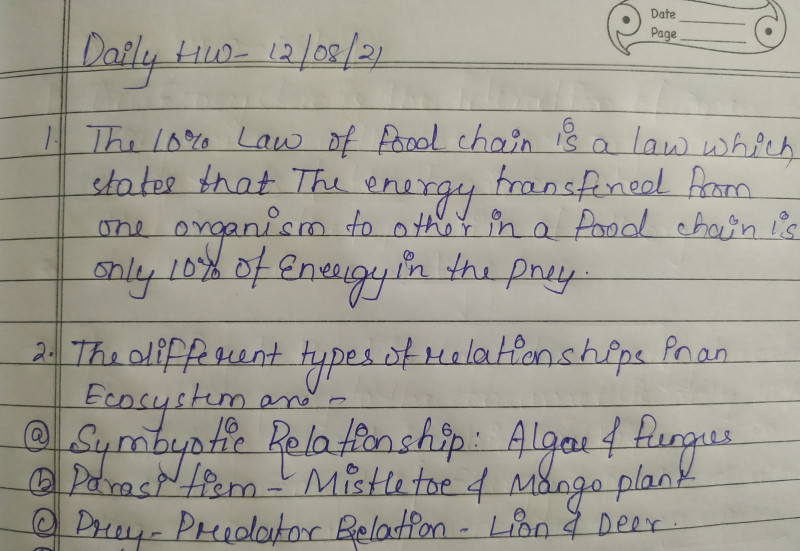 Date
Page
Daily HW- 12/08/21
1. The 10% Law of food chain is a law which
states that The energy transfered from
one organism to other in a food chain is
only 10% of Eneergy in the prey.
2. The different types of relationships in an
Ecosystem are -
(a) Symbyotic Relationship: Algae & Fungus
(b) Parasitism - Mistletoe & Mango plant
(c) Prey-Predator Relation - Lion & Deer.